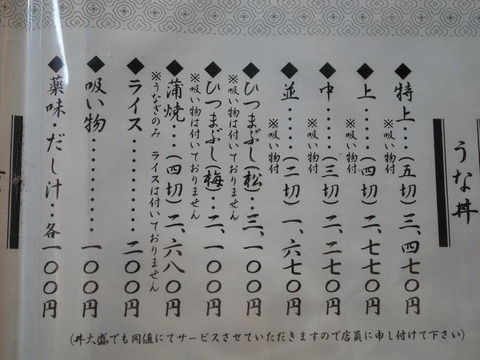 うな丼
◆特上‥‥(五切)三、四七〇円
※吸い物付
◆上‥‥‥(四切)二、七七〇円
※吸い物付
◆中‥‥‥(三切)二、二七〇円
※吸い物付
◆並‥‥‥(二切)一、六七〇円
※吸い物付
◆ひつまぶし(松)‥三、一〇〇円
※吸い物は付いておりません
◆ひつまぶし(梅)‥二、一〇〇円
※吸い物は付いておりません
◆蒲焼‥‥(四切)二、六八〇円
※うなぎのみ ライスは付いておりません
◆ライス‥‥‥‥‥‥二〇〇円
◆吸い物‥‥‥‥‥‥一〇〇円
◆薬味・だし汁‥各一〇〇円
(丼大盛でも同値にてサービスさせていただきますので店員に申し付けて下さい)